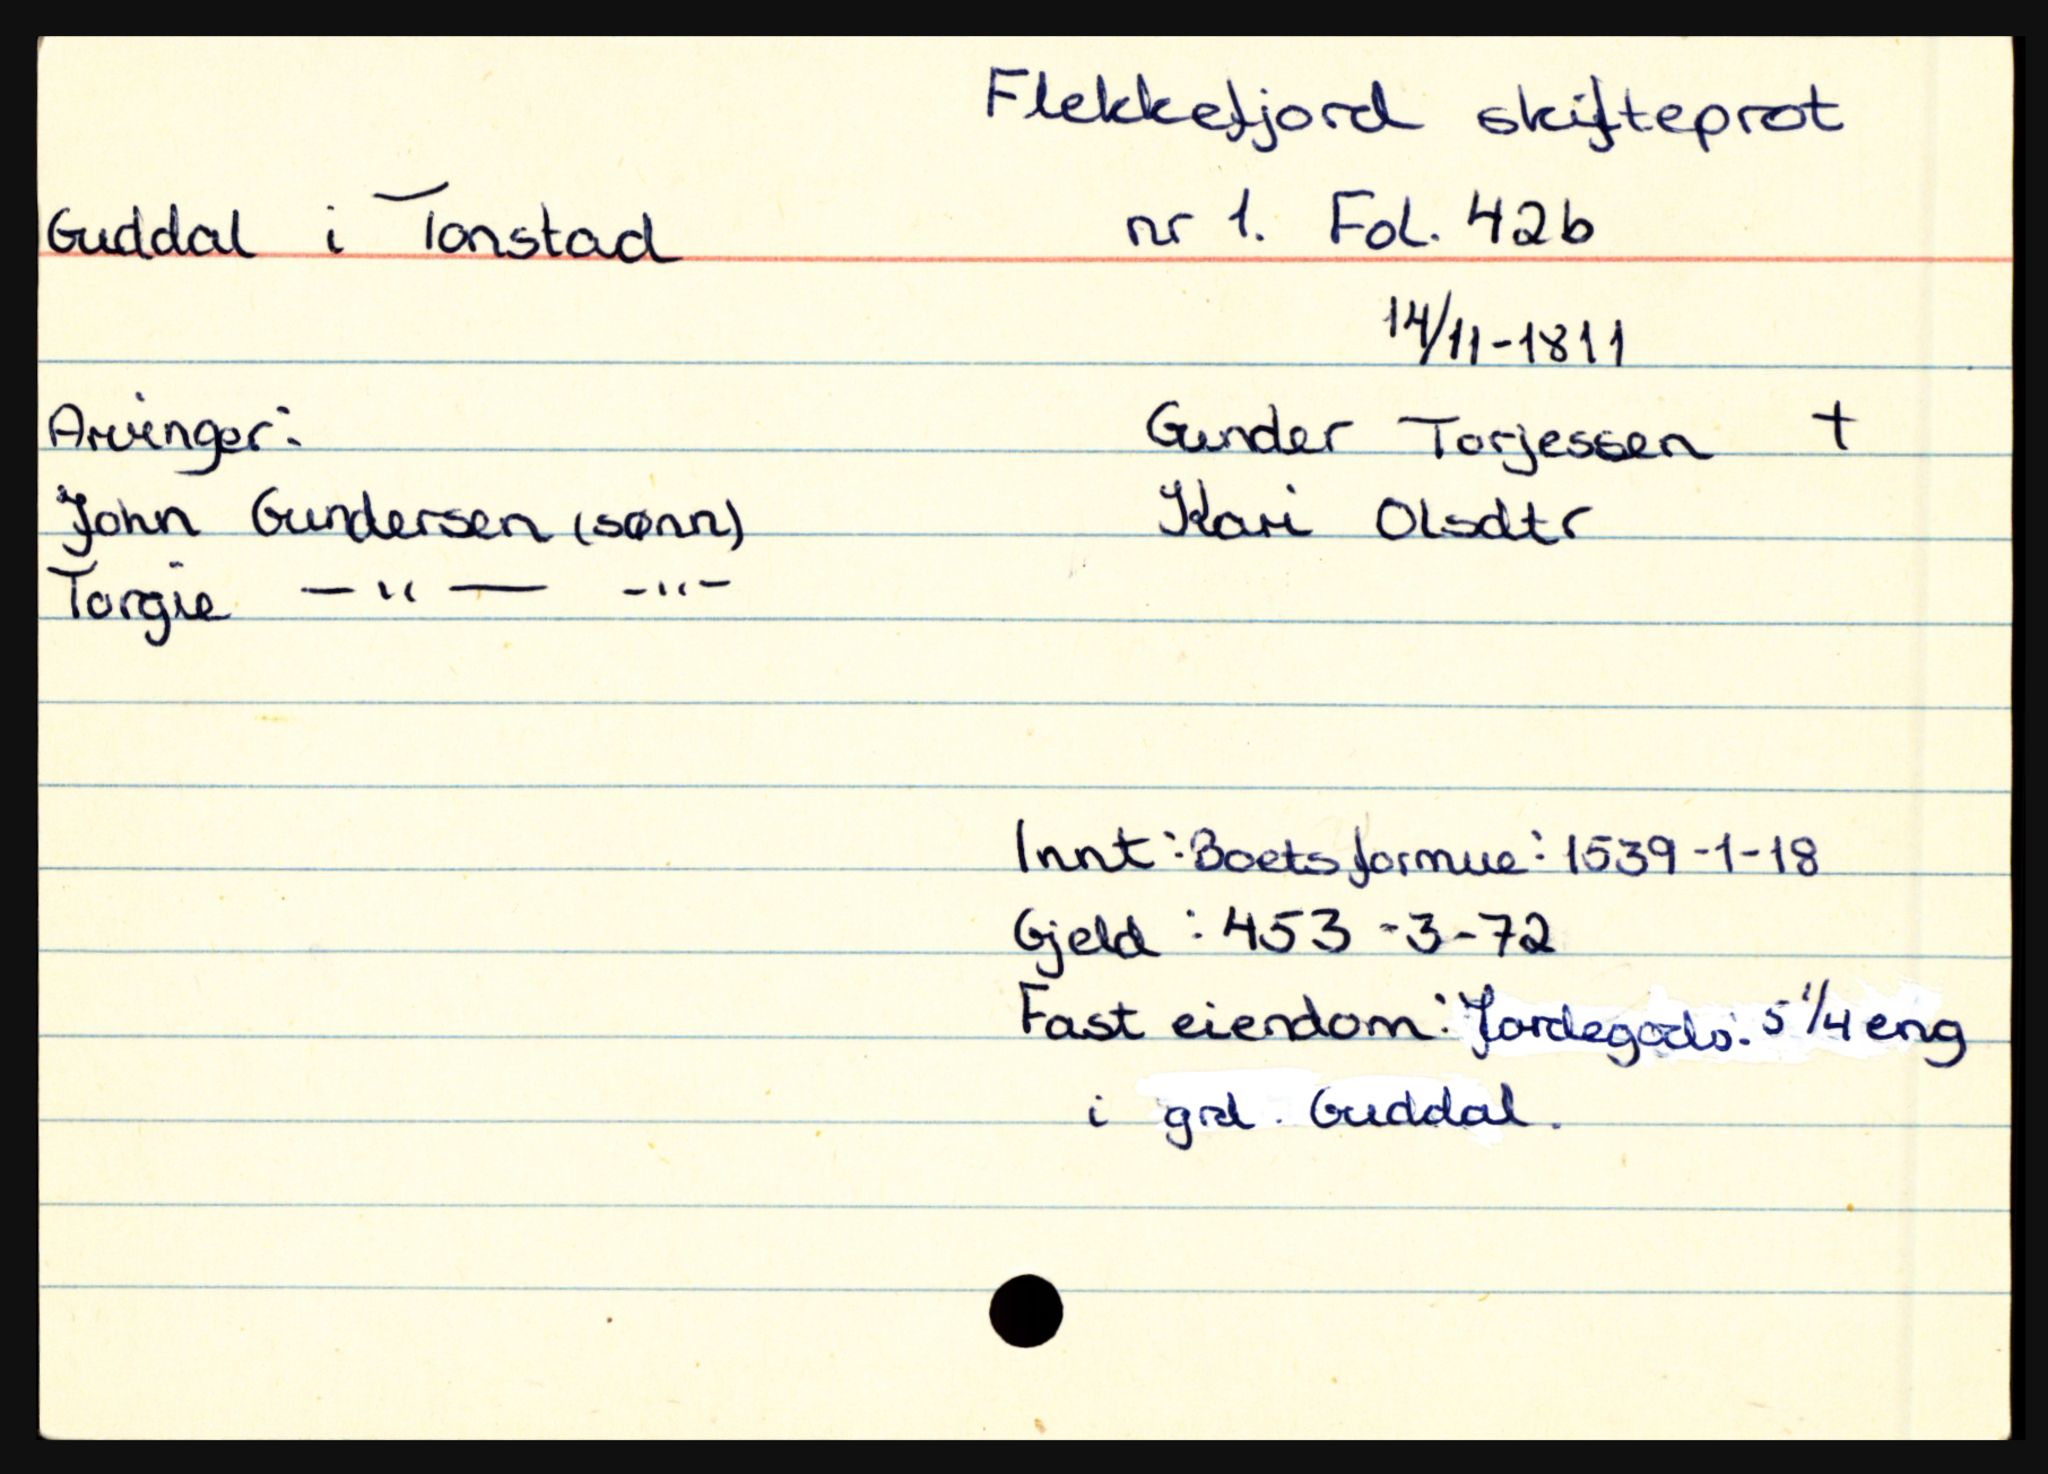 Flekkefjord skifteprot
Guddal i Tonstad nr 1. Fol. 42b
14/11-1811
Arvinger: Gunder Torjessen +
John Gundersen (sønn) Kari Olsdtr
Torgie — " — - " -
Innt: Boets formue: 1539-1-18
Gjeld: 453-3-72
Fast eiendom: Jordegods: 5 1/4 eng
i grd. Guddal.